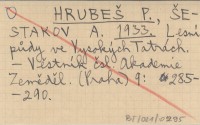 HRUBEŠ P., ŠE-
STAKOV A. 1933. Lesní
půdy ve Vysokých Tatrách.
– Věstník čsl. Akademie
Zeměděl. (Praha) 9: 285-
-290.
BF/021/0295